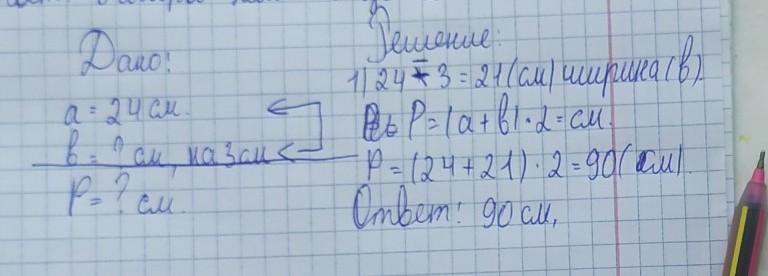 Дано:
a = 24 см.
b = ? см, на 3 см <
P = ? см.
Решение:
1) 24 - 3 = 21 (см) ширина (в).
P = (a + b) · 2 = см.
P = (24 + 21) · 2 = 90 (см).
Ответ: 90 см.